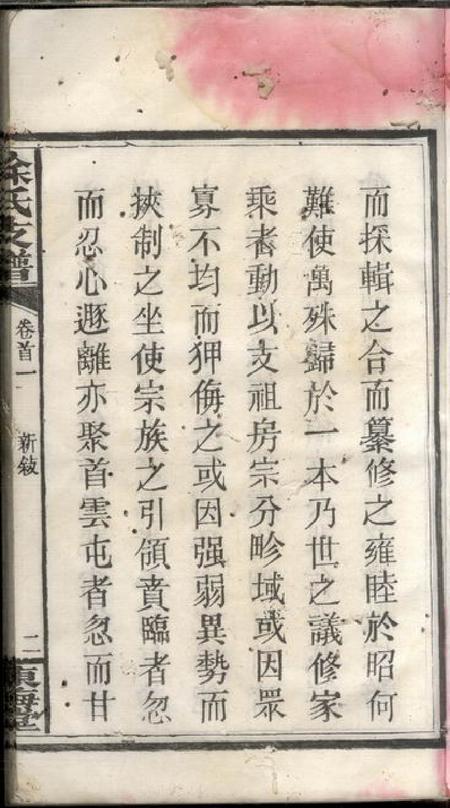 而採輯之合而纂修之雍睦於昭何
難使萬殊歸於一本乃世之議修家
乘者動以支祖房宗分畛域或因眾
寡不均而狎侮之或因强弱異勢而
挾制之坐使宗族之引領賁臨者忽
而忍心遯離亦聚首雲屯者忽而甘
徐氏支譜
卷首一
新敍
二
東海堂